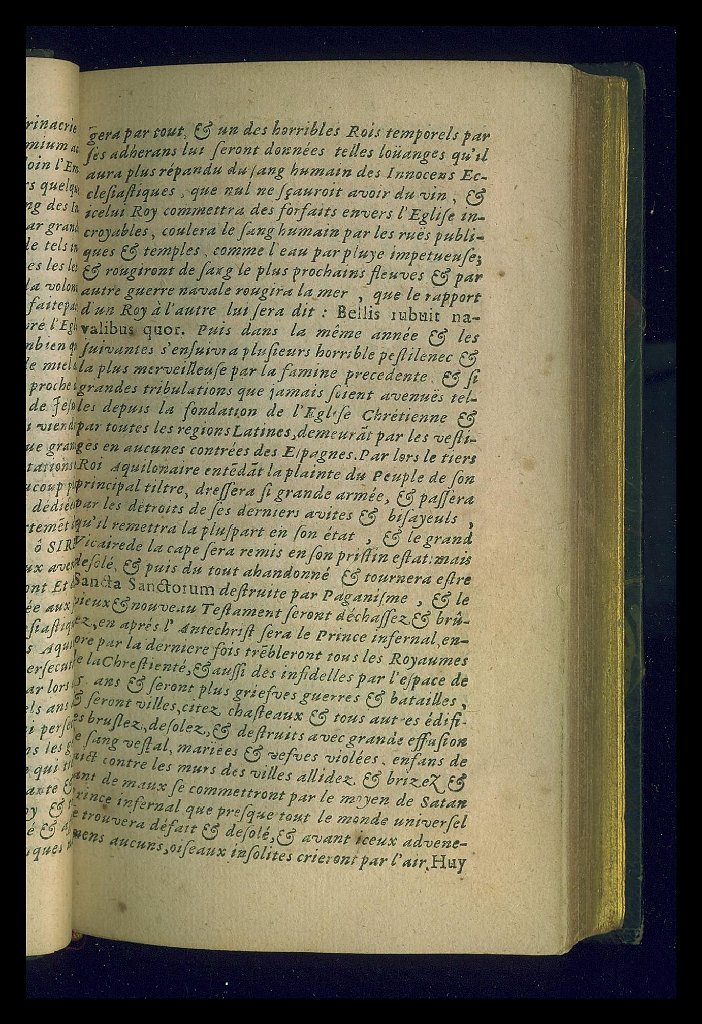 gera par tout, & un des horribles Rois temporels par
ſes adherans lui ſeront données telles loüanges qu'il
aura plus répandu du ſang humain des Innocens Ec-
cleſiaſtiques, que nul ne ſçauroit avoir du vin, &
icelui Roy commettra des forfaits envers l'Egliſe in-
croyables, coulera le ſang humain par les ruës publi-
ques & temples, comme l'eau par pluye impetueuſe;
& rougiront de ſang le plus prochains fleuves & par
autre guerre navale rougira la mer, que le rapport
d'un Roy à l'autre lui ſera dit : Bellis rubuit na-
valibus quor. Puis dans la même année & les
ſuivantes s'enſuivra pluſieurs horrible peſtilenec &
la plus merveilleuſe par la famine precedente, & ſi
grandes tribulations que jamais ſoient avenuës tel-
les depuis la fondation de l'Egliſe Chrétienne &
par toutes les regions Latines, demeurãt par les veſti-
ges en aucunes contrées des Eſpagnes. Par lors le tiers
Roi Aquilonaire entẽdãt la plainte du Peuple de ſon
principal tiltre, dreſſera ſi grande armée, & paſſera
par les détroits de ſes derniers avites & biſayeuls,
qu'il remettra la pluſpart en ſon état, & le grand
Vicaire de la cape ſera remis en ſon priſtin eſtat: mais
deſolé, & puis du tout abandonné & tournera eſtre
Sancta Sanctorum deſtruite par Paganiſme, & le
vieux & nouveau Teſtament ſeront déchaſſez & brû-
ez, en aprés l'Antechriſt ſera le Prince infernal, en-
ore par la derniere fois trẽbleront tous les Royaumes
e la Chreſtienté, & auſſi des infidelles par l'eſpace de
ans & ſeront plus griefves guerres & batailles,
& ſeront villes, citez chaſteaux & tous autres édifi-
es bruſlez, deſolez, & deſtruits avec grande effuſion
e ſang veſtal, mariees & vefves violées, enfans de
aict contre les murs des villes allidez & brizez &
ant de maux ſe commettront par le moyen de Satan
rince infernal que preſque tout le monde univerſel
e trouvera défait & deſolé, & avant iceux advene-
mens aucuns, oiſeaux inſolites crieront par l'air, Huy